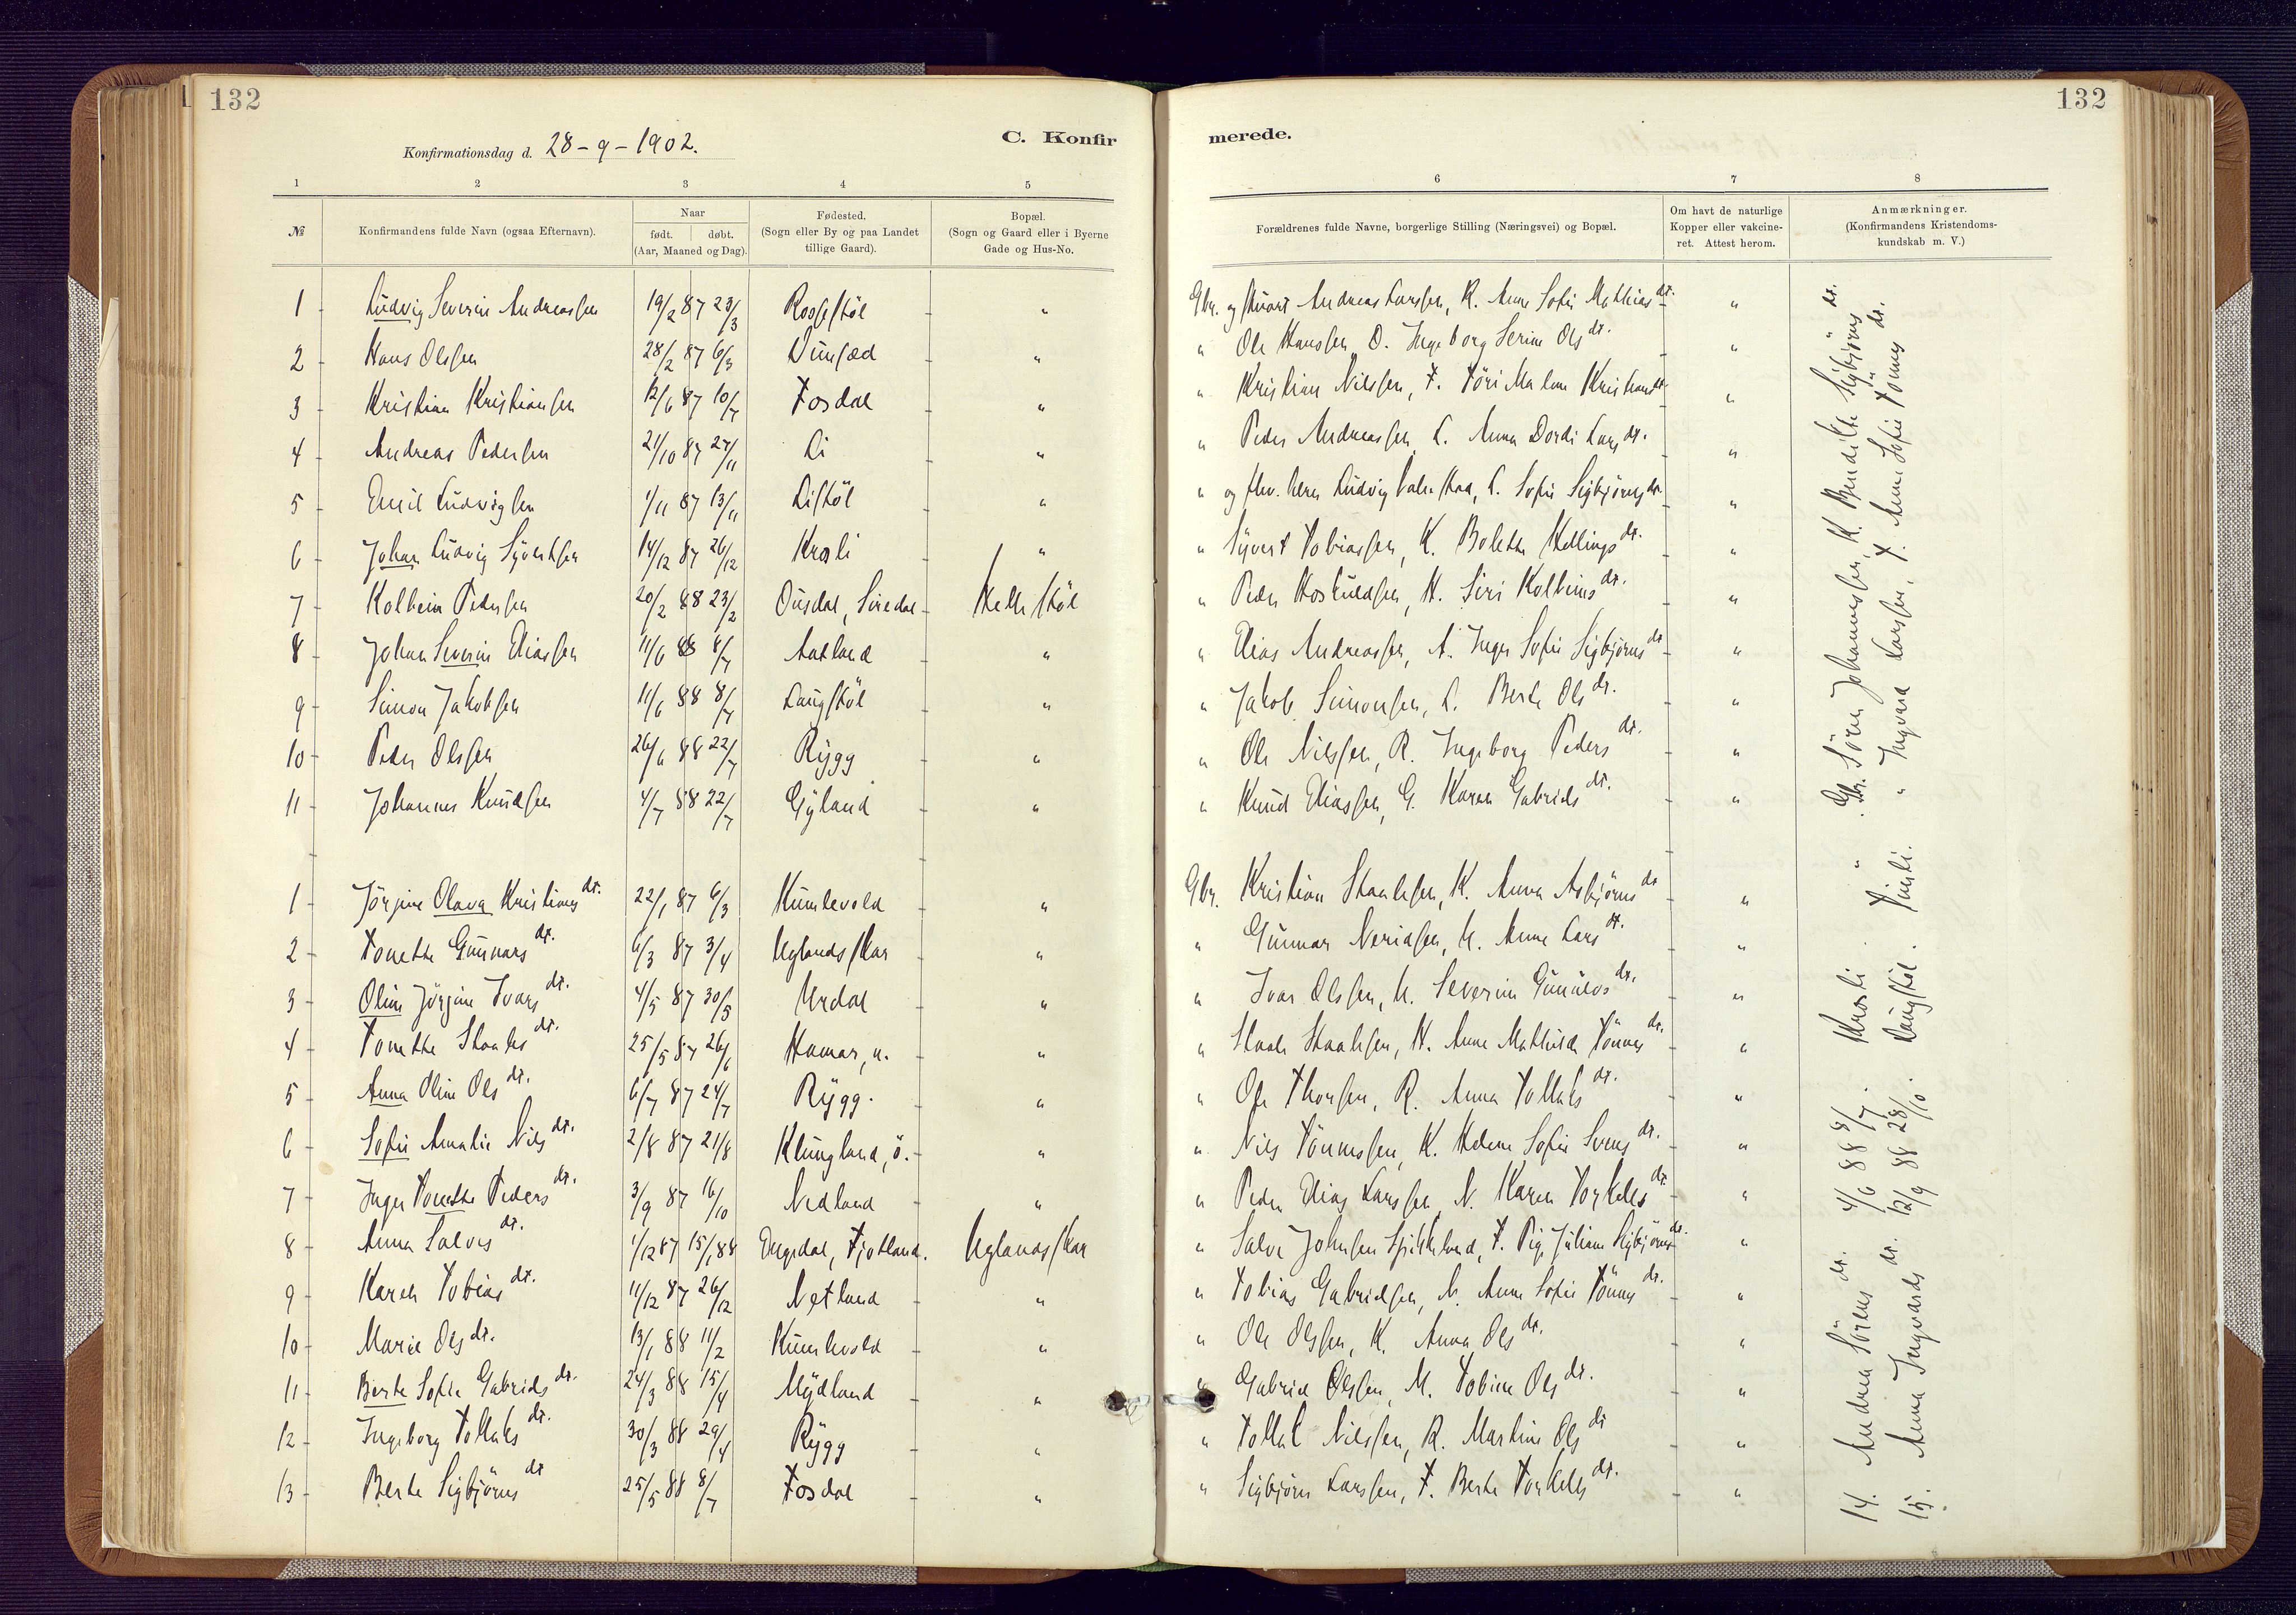 132
Konfirmationsdag d. 28-9-1902.
C. Konfir
1 2 3 4 5
№ Konfirmandens fulde Navn (ogsaa Efternavn). Naar født. døbt. (Aar, Maaned og Dag). Fødested. (Sogn eller By og paa Landet tillige Gaard). Bopæl. (Sogn og Gaard eller i Byerne Gade og Hus-No.
1 Ludvig Severin Andreassen 19/2 87 23/3 "
2 Hans Olssen 28/2 87 6/3 "
3 Kristian Kristianssen 12/6 87 10/7 Tosdal "
4 Andreas Pederssen 21/10 87 27/11 Li "
5 Emil Ludvigssen 1/11 87 13/11 Listöl "
6 Johan Ludvig Syvertssen 14/12 87 26/12 Kroli "
7 Kolbein Pederssen 20/2 88 23/2 Ousdal, Siredal
8 Johan Severin Eliassen 11/6 88 8/7 "
9 Simon Jakobssen 11/6 88 8/7 Laugstöl "
10 Peder Olssen 26/6 88 22/7 Rygg "
11 Johannes Knudssen 4/7 88 22/7 Gyland "
1 Jörgine Olava Kristians dt. 22/1 87 6/3 Kumlevold "
2 Tonette Gunnars dt. 6/3 87 3/4 Uglandsskar "
3 Oline Jörgine Ivars dt. 4/5 87 30/5 Urdal "
4 Tonette Staales dt. 25/5 87 26/6 Hamar, n. "
5 Anna Oline Ols dt. 6/7 87 24/7 Rygg. "
6 Sofie Amalie Nils dt. 2/8 87 21/8 Klungland, ö. "
7 Inger Tonette Peders dt. 3/9 87 16/10 Nedland "
8 Anna Salves dt. 1/12 87 15/1 88 Engedal, Fjotland. Uglandsskar
9 Karen Tobias dt. 11/12 87 26/12 Netland "
10 Marie Ols dt. 13/1 88 11/2 Kumlevold "
11 Berte Sofie Gabriels dt. 24/3 88 15/4 Mydland "
12 Ingeborg Tollaks dt. 30/3 88 29/4 Rygg "
13 Berte Sigbjörns dt 25/5 88 8/7 Tosdal "
132
merede.
6 7 8
Forældrenes fulde Navne, borgerlige Stilling (Næringsvei) og Bopæl. Om havt de naturlige Kopper eller vaccineret. Attest herom. Anmærkninger. (Konfirmandens Kristendomskundskab m. V.)
Gbr. og Andreas Larssen, R. Anne Sofie Mathias dt. "
" Ole Hanssen, D. Ingeborg Serine Ols dt. "
" Kristian Nilssen, T. Malene Kristians dt. "
" Peder Andreassen, L. Anna Dordi Lars dt. "
" og Ludvig L. Sofie Sigbjörns dt. "
" Syvert Tobiassen, K. Bolette dt. "
" Peder Hoskuldssen, H. Siri Kolbeins dt. "
" Elias Andreassen, A. Inger Sofie Sigbjörns dt "
" Jakob Simonssen, L. Berte Ols dt. "
" Ole Nilssen, R. Ingeborg Peders dt. "
" Knud Eliassen, G. Karen Gabriels dt. "
Gbr. Kristian Staalessen, K. Anna Asbjörns dt "
" Gunnar Neridssen, U. Anne Lars dt. "
" Ivar Olssen, U. Severine Gunulvs dt. "
" Staale Staalessen, H. Anne Mathilde Tönnes dt. "
" Ole Thorssen, R. Anna Tollaks dt. "
" Nils Tönnessen, K. Helene Sofie Svens dt. "
" Peder Elias Larssen, N. Karen Torkells dt. "
" Salve Johnssen T. Pige Juliane Sigbjörns dt. "
" Tobias Gabrielssen, N. Anne Sofie Tönnes dt. "
" Ole Olssen, K. Anna Ols dt. "
" Gabriel Olssen, M. Tobine Ols dt. "
" Tollak Nilssen, R. Martine Ols dt "
" Sigbjörn Larssen, T. Berte Torkells dt. "
14. Andrea Sörens dt. 4/6 88 8/7. Kroli. " Gbr. Sören Johannessen, K. Bendikte Sigbjörns dt.
15. Anna Ingvards dt. 12/9 88 28/10. Laugstöl. Tunli. " Ingvard Larssen, T. Anne Sofie Tönnes dt.